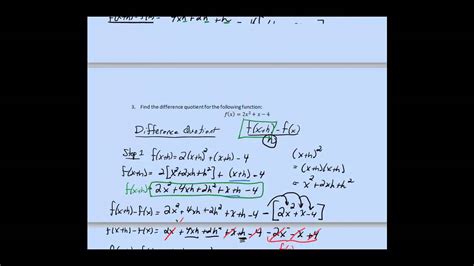 f(x+h)-f(x) = 4xh+2h²+h
3. Find the difference quotient for the following function:
f(x) = 2x² + x − 4
Difference Quotient f(x+h)-f(x)
h
Step 1 f(x+h)=2(x+h)²+(x+h)-4
(x+h)²
f(x+h)= 2[x²+2xh+h²]+(x+h)-4
= (x+h)(x+h)
= x²+2xh+h²
f(x+h)= 2x²+4xh+2h²+x+h-4
f(x+h)-f(x)= 2x²+4xh+2h²+x+h-4-[2x²+x-4]
f(x+h)-f(x)= 2x²+4xh+2h²+x+h-4-2x²-x+4